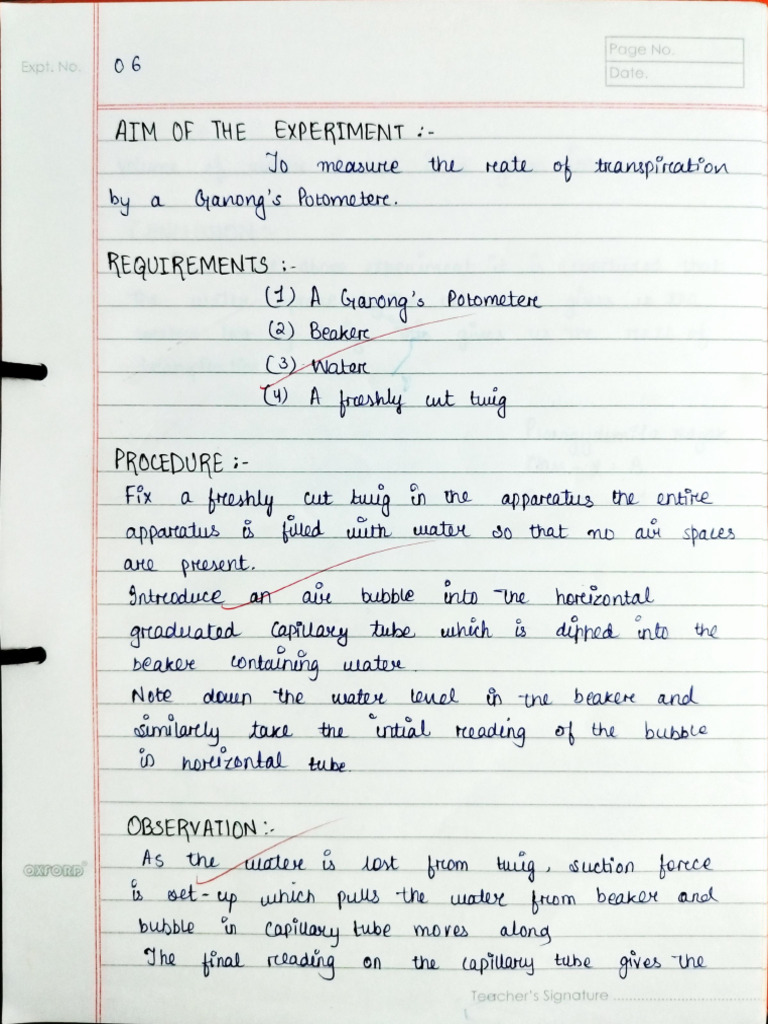 Expt. No. 06
Page No.
Date.
AIM OF THE EXPERIMENT :-
To measure the rate of transpiration
by a Ganong's Potometer.
REQUIREMENTS :-
(1) A Ganong's Potometer
(2) Beaker
(3) Water
(4) A freshly cut twig
PROCEDURE :-
Fix a freshly cut twig in the apparatus the entire
apparatus is filled with water so that no air spaces
are present.
Introduce an air bubble into the horizontal
graduated capillary tube which is dipped into the
beaker containing water.
Note down the water level in the beaker and
similarly take the intial reading of the bubble
in horizontal tube.
OBSERVATION :-
As the water is lost from twig, suction force
is set-up which pulls the water from beaker and
bubble in capillary tube moves along
The final reading on the capillary tube gives the
OXFORD
Teacher's Signature